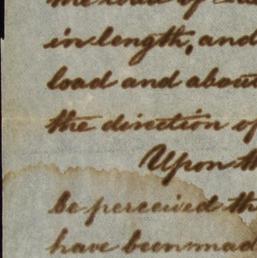 the load of
in length, and
load and about
the direction of
Upon th
be perceived th
have been mad